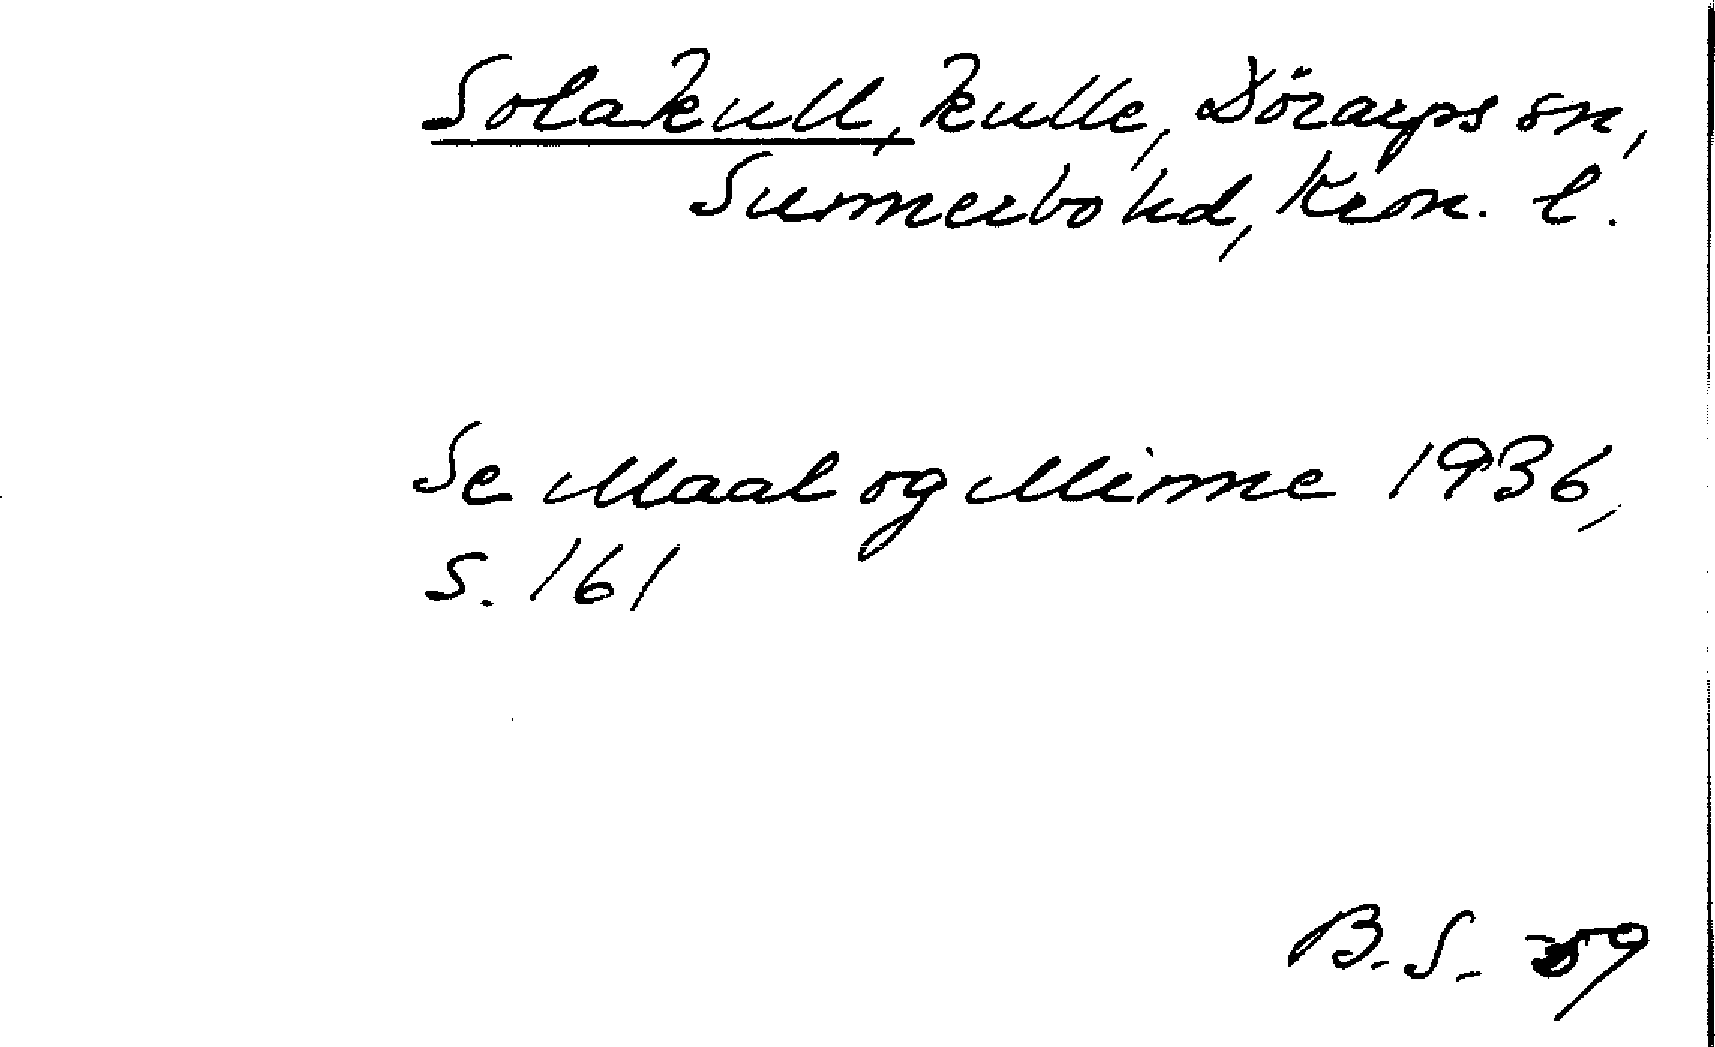 Solakull, kulle, Dörarps sn,
Sunnerbo hd, Kron. l.
Se Maal og Minne 1936,
s. 161
B. S. 59